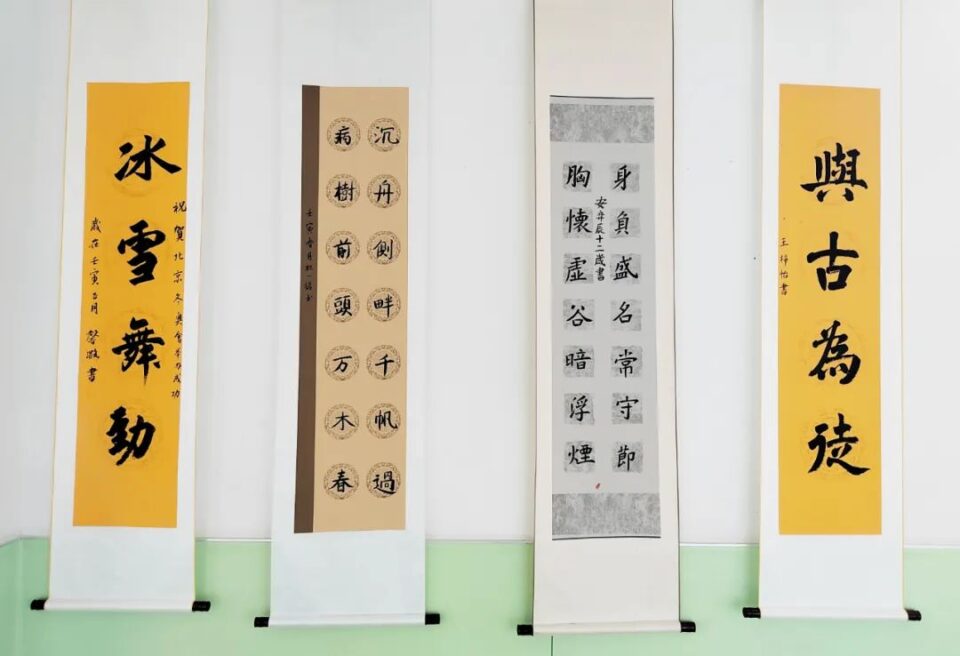 祝賀北京冬奥會成功
冰雪舞動
歲在壬寅月書
沉舟側畔千帆過
病樹前頭万木春
壬寅春月
身負盛名常守節
辰十二歲書
胸懷虛谷暗浮煙
與古為徒
王梓怡書